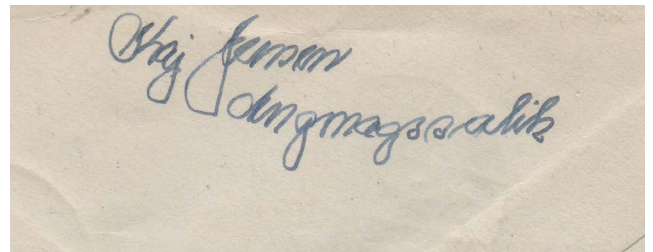 Kaj Jensen
Angmagssalik